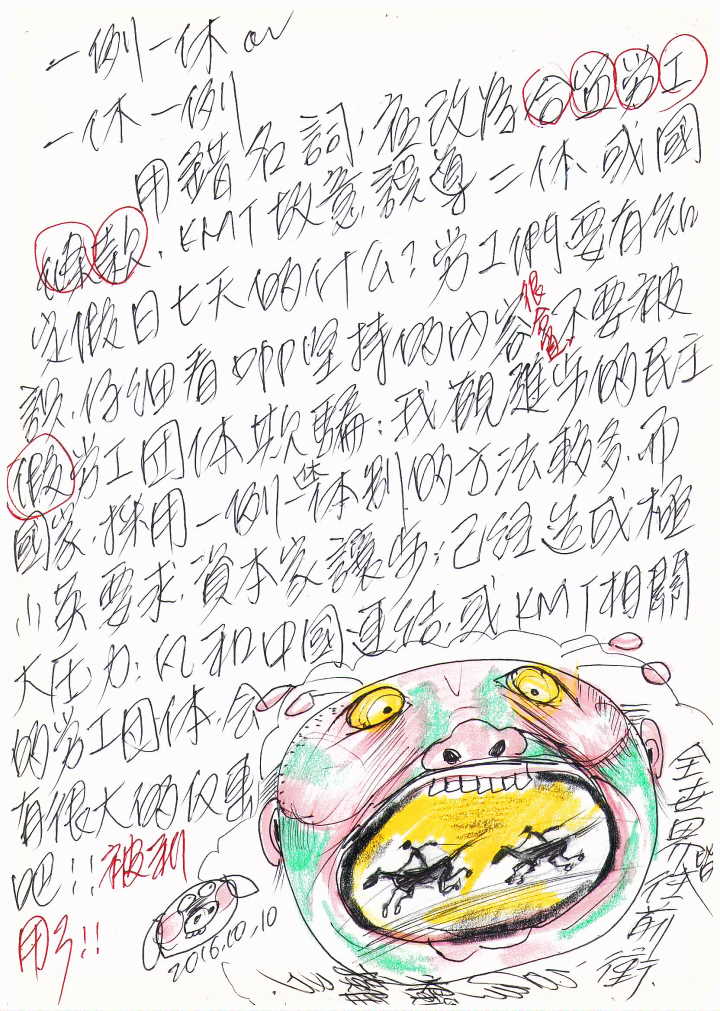 一例一休 or
一休一例
用錯名詞,在改 台湾劳工
條款,KMT故意誤導二休或國
定假日七天的什么?労工們要有知
識,仔細看 坚持的內容很重 不要被
假労工团体欺騙:我觀進步的民主
國家,採用一例一 休制的方法較多,而
小英要求,資本家讓步;已經造成極
大压力;凡和中國連結,或KMT相關
的労工团体,会
有很大的 
吧!!被利
用了!!
2016.10.10
全世界皆往前衝